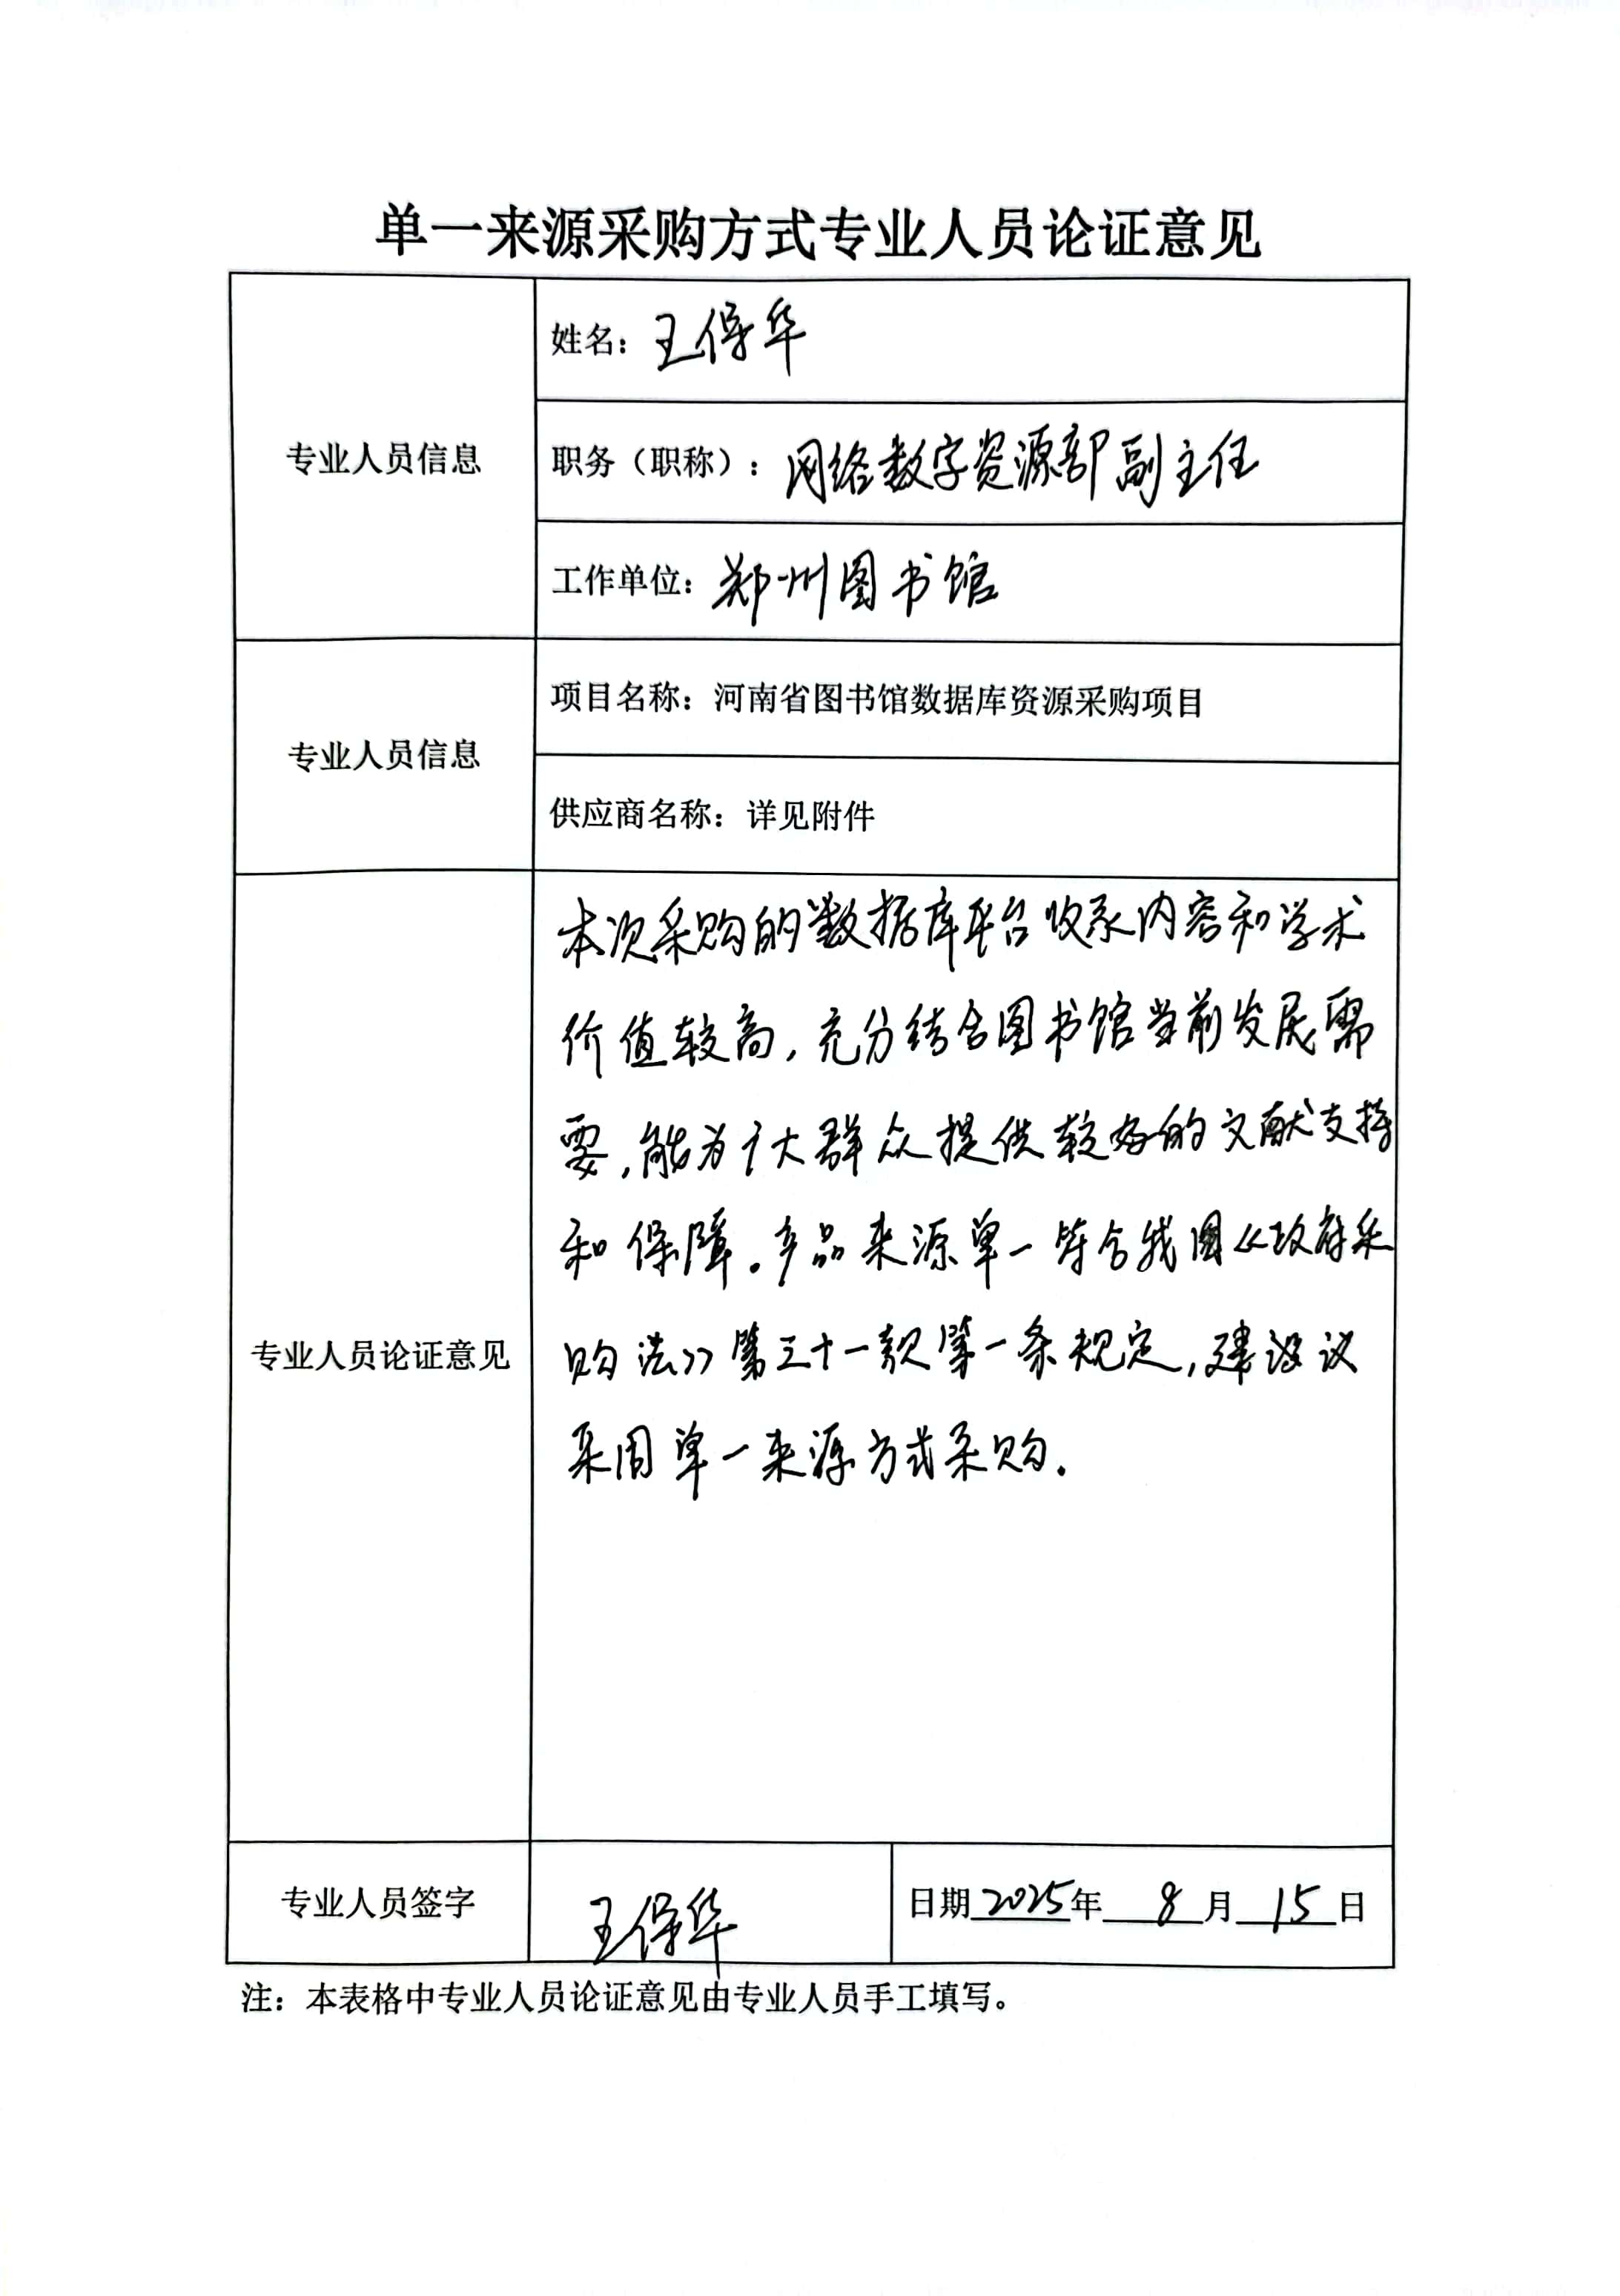 单一来源采购方式专业人员论证意见
专业人员信息
姓名：王保华
职务（职称）：网络数字资源部副主任
工作单位：郑州图书馆
专业人员信息
项目名称：河南省图书馆数据库资源采购项目
供应商名称：详见附件
专业人员论证意见
本次采购的数据库平台收录内容和学术
价值较高，充分结合图书馆当前发展需
要，能为广大群众提供较好的文献支持
和保障。产品来源单一符合我国《政府采
购法》第三十一款第一条规定，建设议
采用单一来源方式采购.
专业人员签字
王保华
日期2025年8月15日
注：本表格中专业人员论证意见由专业人员手工填写。